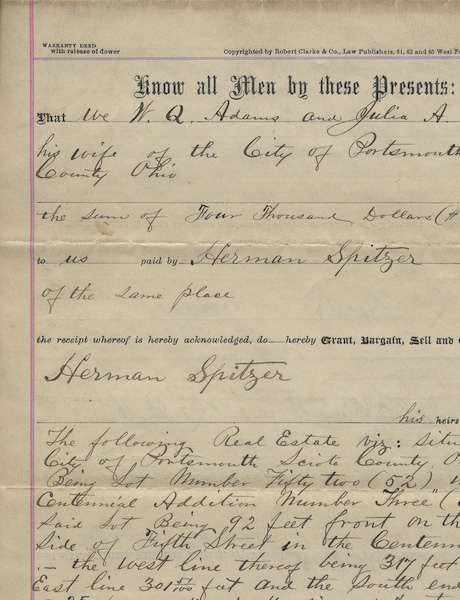 WARRANTY DEED
with release of dower
Copyrighted by Robert Clarke & Co., Law Publishers, 61, 63 and 65 West
Know all Men by these Presents:
That we W. Q. Adams and Julia A
his wife of the City of Portsmouth
County Ohio
the sum of Four Thousand Dollars (
to us paid by Herman Spitzer
of the same place
the receipt whereof is hereby acknowledged, do hereby Grant, Bargain, Sell and
Herman Spitzer
his heirs
The following Real Estate viz: Situ
City of Portsmouth Scioto County, O
Being Lot Number Fifty two (52)
Centennial Addition Number Three" (
Said Lot Being 92 feet front on th
Side of Fifth Street in the Centenn
- the West line thereof being 317 feet
East line 301 feet and the South end